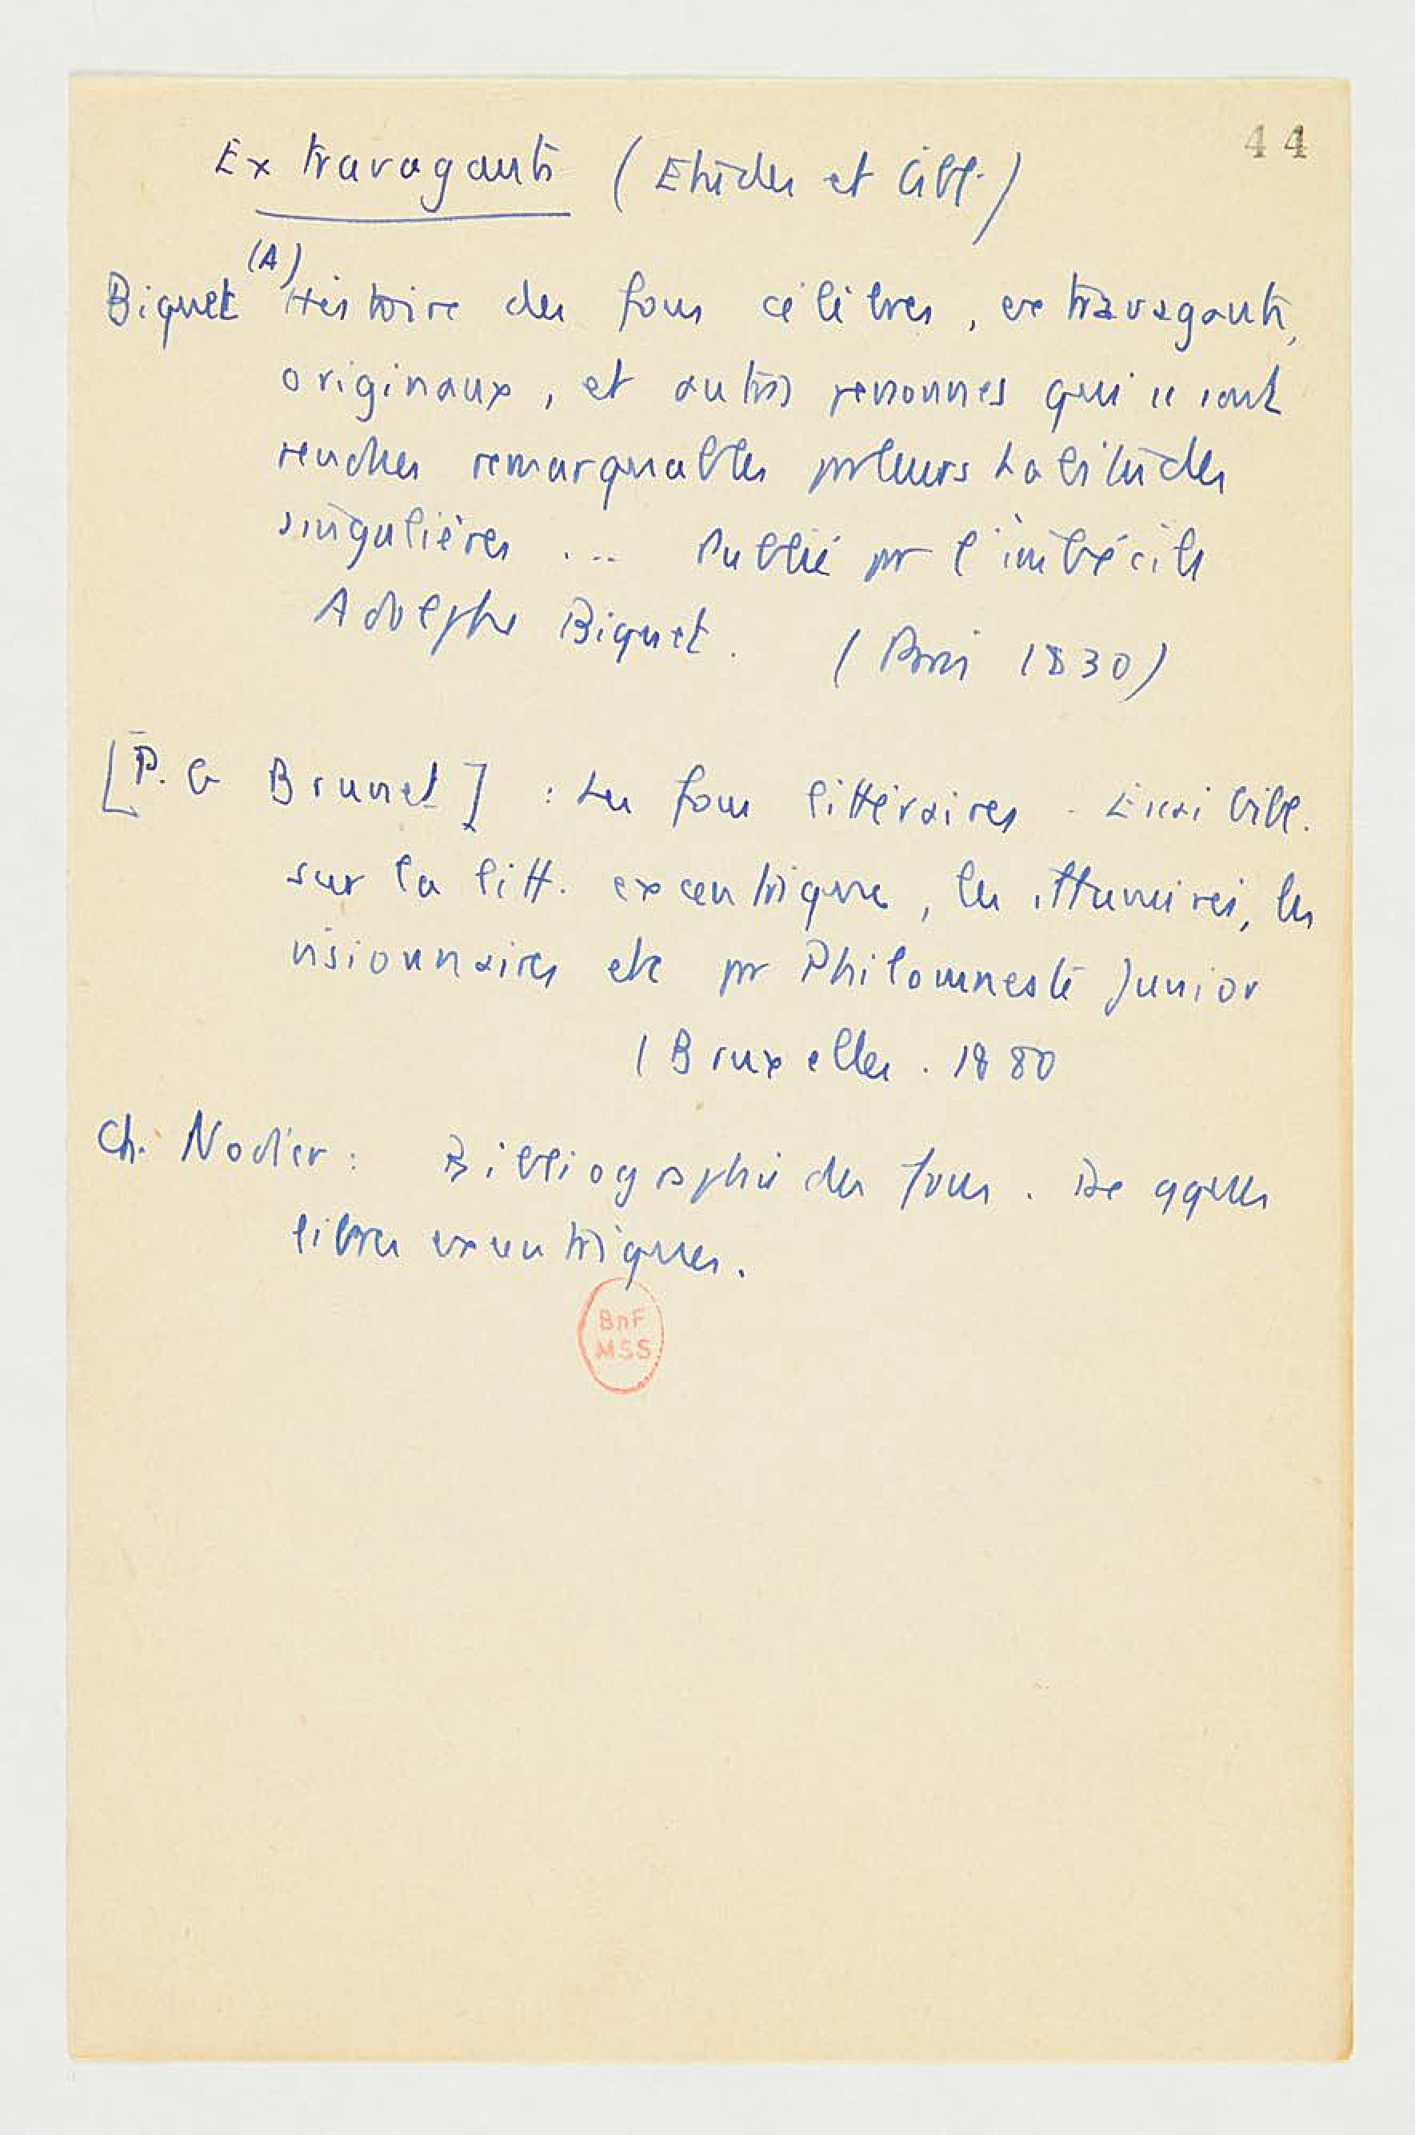 44
Extravagants (Etudes et bibl.)
(A)
Biquet Histoire des fous célèbres, extravagants,
originaux, et autres personnes qui se sont
rendues remarquables pr leurs habitudes
singulières ... Publié pr l'imbécile
Adolphe Biquet. (Paris 1830)
[P. G Brunet] : Les fous littéraires - Essai bibl.
sur la litt. excentrique, les illuminés, les
visionnaires etc pr Philomneste Junior
(Bruxelles. 1880
Ch. Nodier : Bibliographie des fous. De qques
livres excentriques.
BnF
MSS